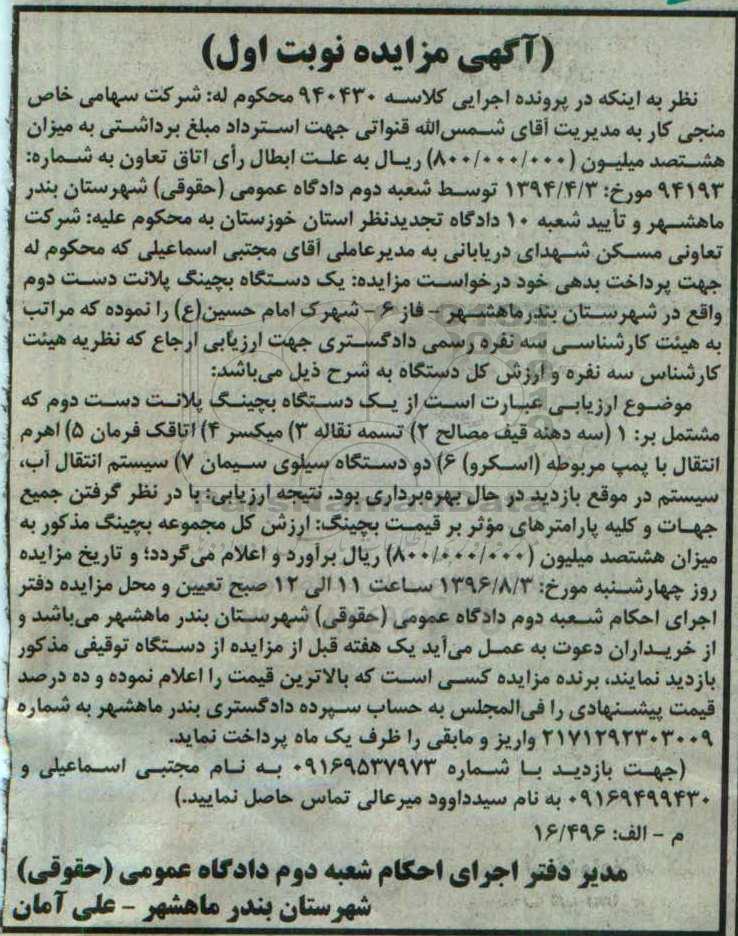 (آگهی مزایده نوبت اول)
نظر به اینکه در پرونده اجرایی کلاسه ۹۴۰۴۳۰ محکوم له: شرکت سهامی خاص
منجی کار به مدیریت آقای شمس‌الله قنواتی جهت استرداد مبلغ برداشتی به میزان
هشتصد میلیون (۸۰۰/۰۰۰/۰۰۰) ریال به علت ابطال رأی اتاق تعاون به شماره:
۹۴۱۹۳ مورخ: ۱۳۹۴/۴/۳ توسط شعبه دوم دادگاه عمومی (حقوقی) شهرستان بندر
ماهشهر و تأیید شعبه ۱۰ دادگاه تجدیدنظر استان خوزستان به محکوم علیه: شرکت
تعاونی مسکن شهدای دریابانی به مدیرعاملی آقای مجتبی اسماعیلی که محکوم له
جهت پرداخت بدهی خود درخواست مزایده: یک دستگاه بچینگ پلانت دست دوم
واقع در شهرستان بندرماهشهر - فاز ۶ - شهرک امام حسین(ع) را نموده که مراتب
به هیئت کارشناسی سه نفره رسمی دادگستری جهت ارزیابی ارجاع که نظریه هیئت
کارشناس سه نفره و ارزش کل دستگاه به شرح ذیل می‌باشد:
موضوع ارزیابی عبارت است از یک دستگاه بچینگ پلانت دست دوم که
مشتمل بر: ۱ (سه دهنه قیف مصالح ۲) تسمه نقاله ۳) میکسر ۴) اتاقک فرمان ۵) اهرم
انتقال با پمپ مربوطه (اسکرو) ۶) دو دستگاه سیلوی سیمان ۷) سیستم انتقال آب،
سیستم در موقع بازدید در حال بهره‌برداری بود. نتیجه ارزیابی: با در نظر گرفتن جمیع
جهات و کلیه پارامترهای مؤثر بر قیمت بچینگ: ارزش کل مجموعه بچینگ مذکور به
میزان هشتصد میلیون (۸۰۰/۰۰۰/۰۰۰) ریال برآورد و اعلام می‌گردد؛ و تاریخ مزایده
روز چهارشنبه مورخ: ۱۳۹۶/۸/۳ ساعت ۱۱ الی ۱۲ صبح تعیین و محل مزایده دفتر
اجرای احکام شعبه دوم دادگاه عمومی (حقوقی) شهرستان بندر ماهشهر می‌باشد و
از خریداران دعوت به عمل می‌آید یک هفته قبل از مزایده از دستگاه توقیفی مذکور
بازدید نمایند، برنده مزایده کسی است که بالاترین قیمت را اعلام نموده و ده درصد
قیمت پیشنهادی را فی‌المجلس به حساب سپرده دادگستری بندر ماهشهر به شماره
۲۱۷۱۲۹۲۳۰۳۰۰۹ واریز و مابقی را ظرف یک ماه پرداخت نماید.
(جهت بازدید با شماره ۰۹۱۶۹۵۳۷۹۷۳ به نام مجتبی اسماعیلی و
۰۹۱۶۹۴۹۹۴۳۰ به نام سیدداوود میرعالی تماس حاصل نمایید.)
م - الف: ۱۶/۴۹۶
مدیر دفتر اجرای احکام شعبه دوم دادگاه عمومی (حقوقی)
شهرستان بندر ماهشهر - علی آمان